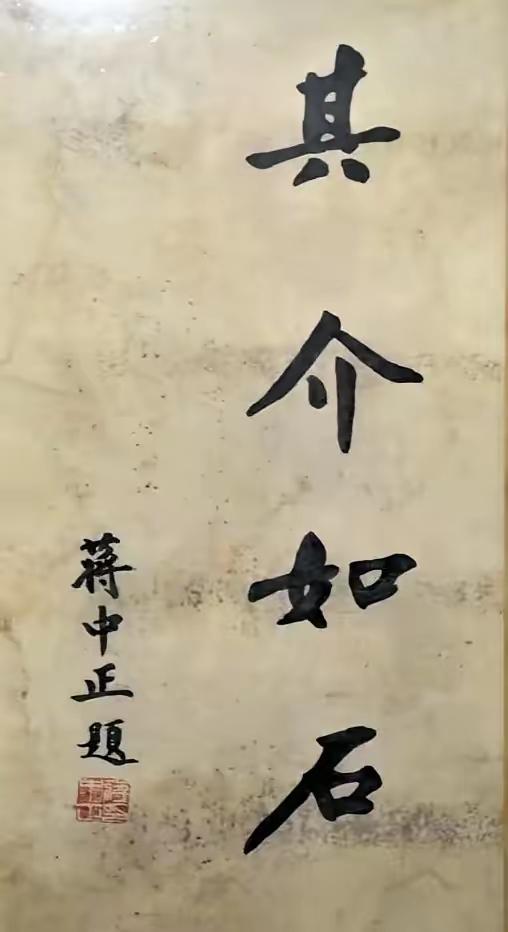 其介如石
蔣中正題